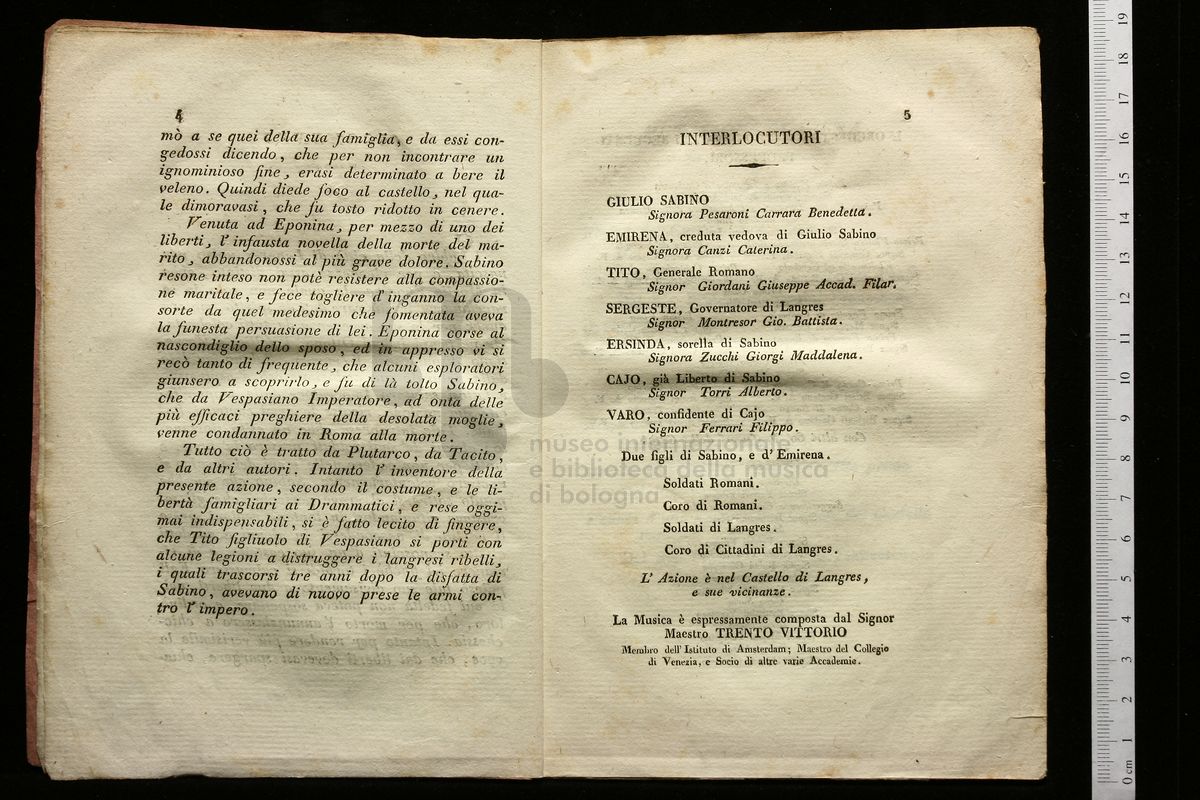 4
mò a se quei della sua famiglia, e da essi con-
gedossi dicendo, che per non incontrare un
ignominioso fine, erasi determinato a bere il
veleno. Quindi diede foco al castello, nel qua-
le dimoravasi, che fu tosto ridotto in cenere.
Venuta ad Eponina, per mezzo di uno dei
liberti, l'infausta novella della morte del ma-
rito, abbandonossi al più grave dolore. Sabino
resone inteso non potè resistere alla compassio-
ne maritale, e fece togliere d'inganno la con-
sorte da quel medesimo che fomentata aveva
la funesta persuasione di lei. Eponina corse al
nascondiglio dello sposo, ed in appresso vi si
recò tanto di frequente, che alcuni esploratori
giunsero a scoprirlo, e fu di là tolto Sabino,
che da Vespasiano Imperatore, ad onta delle
più efficaci preghiere della desolata moglie,
venne condannato in Roma alla morte.
Tutto ciò è tratto da Plutarco, da Tacito,
e da altri autori. Intanto l'inventore della
presente azione, secondo il costume, e le li-
bertà famigliari ai Drammatici, e rese oggi-
mai indispensabili, si è fatto lecito di fingere,
che Tito figliuolo di Vespasiano si porti con
alcune legioni a distruggere i langresi ribelli,
i quali trascorsi tre anni dopo la disfatta di
Sabino, avevano di nuovo prese le armi con-
tro l'impero.
5
INTERLOCUTORI
GIULIO SABINO
Signora Pesaroni Carrara Benedetta.
EMIRENA, creduta vedova di Giulio Sabino
Signora Canzi Caterina.
TITO, Generale Romano
Signor Giordani Giuseppe Accad. Filar.
SERGESTE, Governatore di Langres
Signor Montresor Gio. Battista.
ERSINDA, sorella di Sabino
Signora Zucchi Giorgi Maddalena.
CAJO, già Liberto di Sabino
Signor Torri Alberto.
VARO, confidente di Cajo
Signor Ferrari Filippo.
Due figli di Sabino, e d'Emirena.
Soldati Romani.
Coro di Romani.
Soldati di Langres.
Coro di Cittadini di Langres.
L'Azione è nel Castello di Langres,
e sue vicinanze.
La Musica è espressamente composta dal Signor
Maestro TRENTO VITTORIO
Membro dell'Istituto di Amsterdam; Maestro del Collegio
di Venezia, e Socio di altre varie Accademie.
museo internazionale
e biblioteca della musica
di bologna
0 cm 1 2 3 4 5 6 7 8 9 10 11 12 13 14 15 16 17 18 19